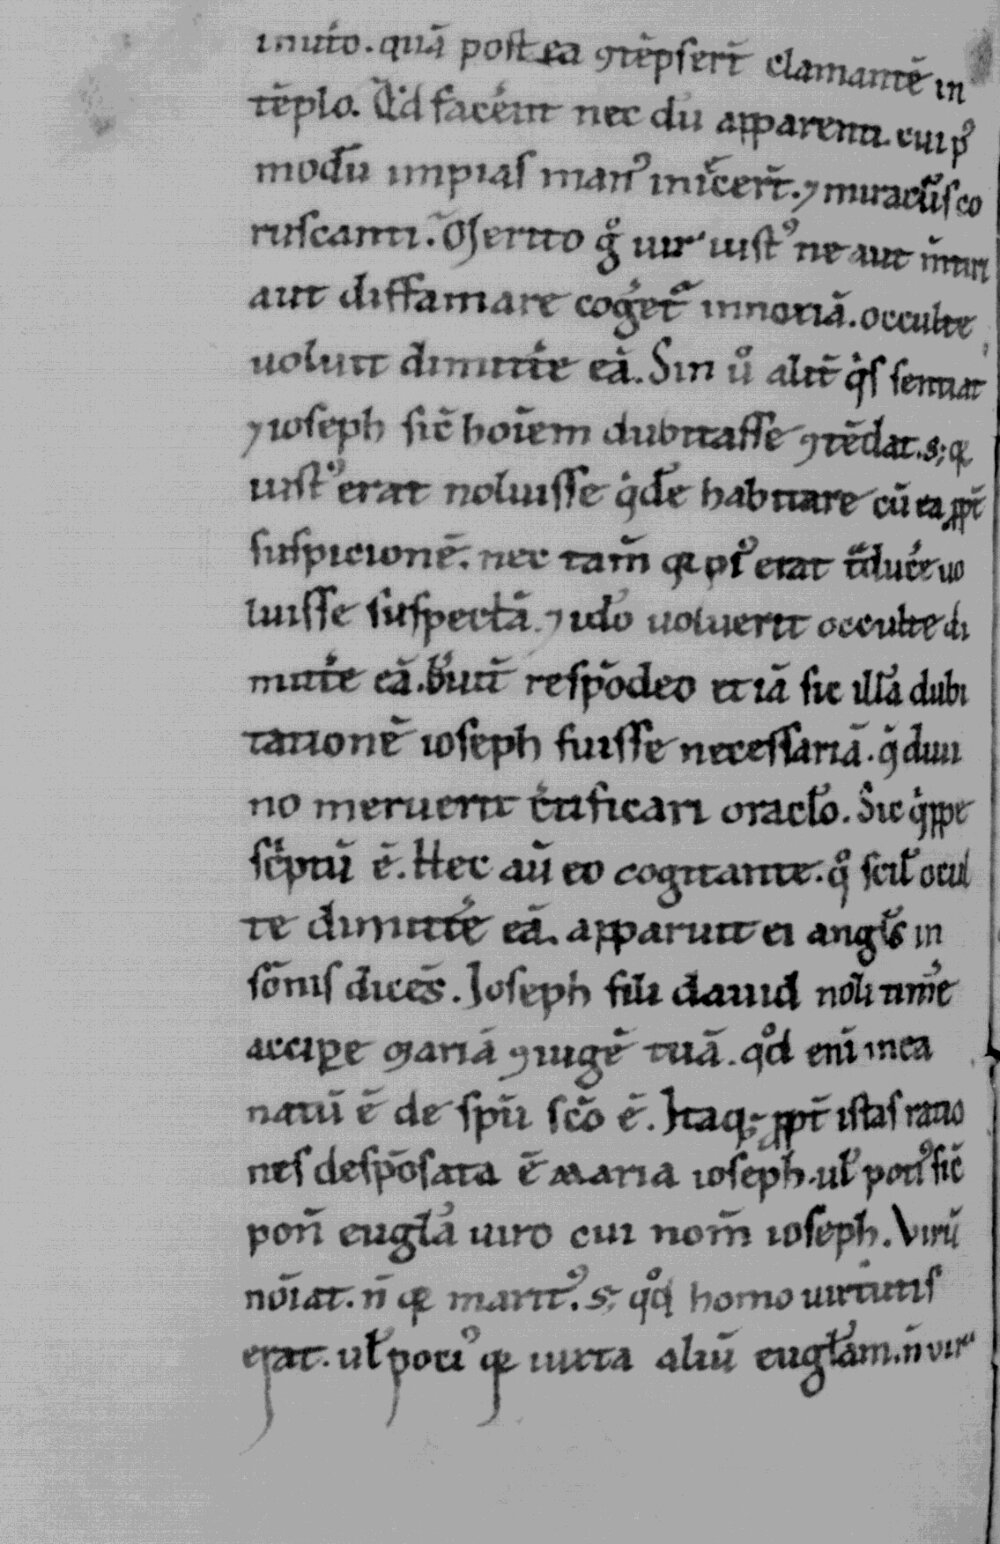 inuito. quā post ea ꝯtēpserт̄ clamantē in
tēplo. Qͥd facerēt nec dū apparenti. cui pꝰ
modū impias manꝰ iniec̄er̄t. ⁊ miraculis co
ruscanti. Merito gͦ uir iustꝰ ne aut m̄tiri
aut diffamare cogeret᷑ innoxiā. occulte
uoluit dimitte͛ eā. Sin ủ alit̄ qͥs sentiat
⁊ ioseph sic̄ hoīem dubitasse ꝯtēdat. s; qꝛ
iustꝰ erat noluisse qͥdē habitare cū ea ꝓpt̄
suspicionē. nec tam̄ qꝛ piꝰ erat tͣduce͛ uo
luisse suspectā. ⁊ ido̅ uoluerit occulte di
mitte͛ eā. breuit̄ respōdeo et iā sic illā dubi
tationē ioseph fuisse necessariā. q̄ diui
no meruerit c͛tificari oraclo̅. Sic qͥppe
sc͛ptū ē. Hec aū eo cogitante. qͦ scil̅ ocul
te dimitte͛ eā. apparuit ei angl̅s in
sōnis dicēs. Ioseph fili dauid noli time͛
accipe Mariā ꝯiugē tuā. qͦd enī in ea
natū ē de spū sc̄o ē. Itaq; ꝓpt̄ istas ratio
nes despōsata ē Maria ioseph. ul̅ potiꝰ sic̄
pon̄ eug̅la uiro cui nom̄ ioseph. Virū
nōiat. n̄ qꝛ maritꝰ. s; qͦd homo uirtutis
erat. ul̅ potiꝰ qꝛ iuxta aliū eug̅lam. n̄ vir